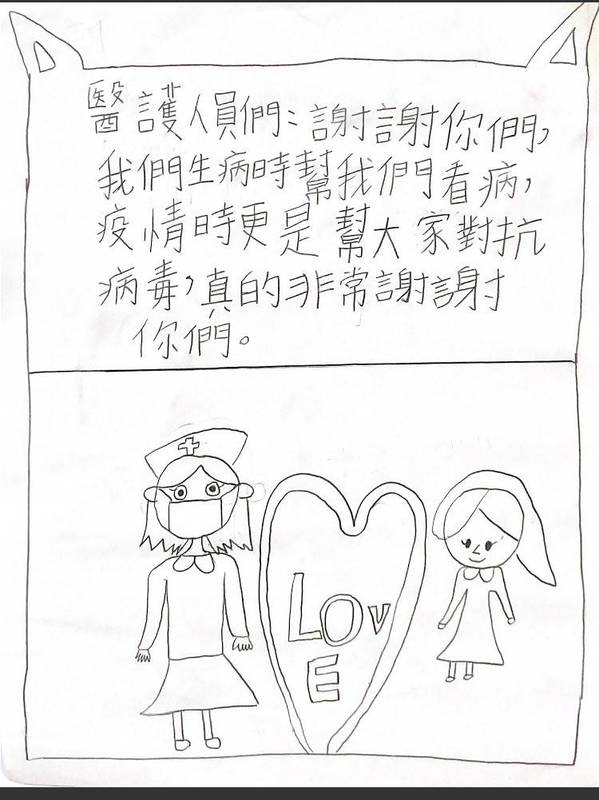 醫護人員們：謝謝你們，
我們生病時幫我們看病，
疫情時更是幫大家對抗
病毒，真的非常謝謝
你們。
LOV
E